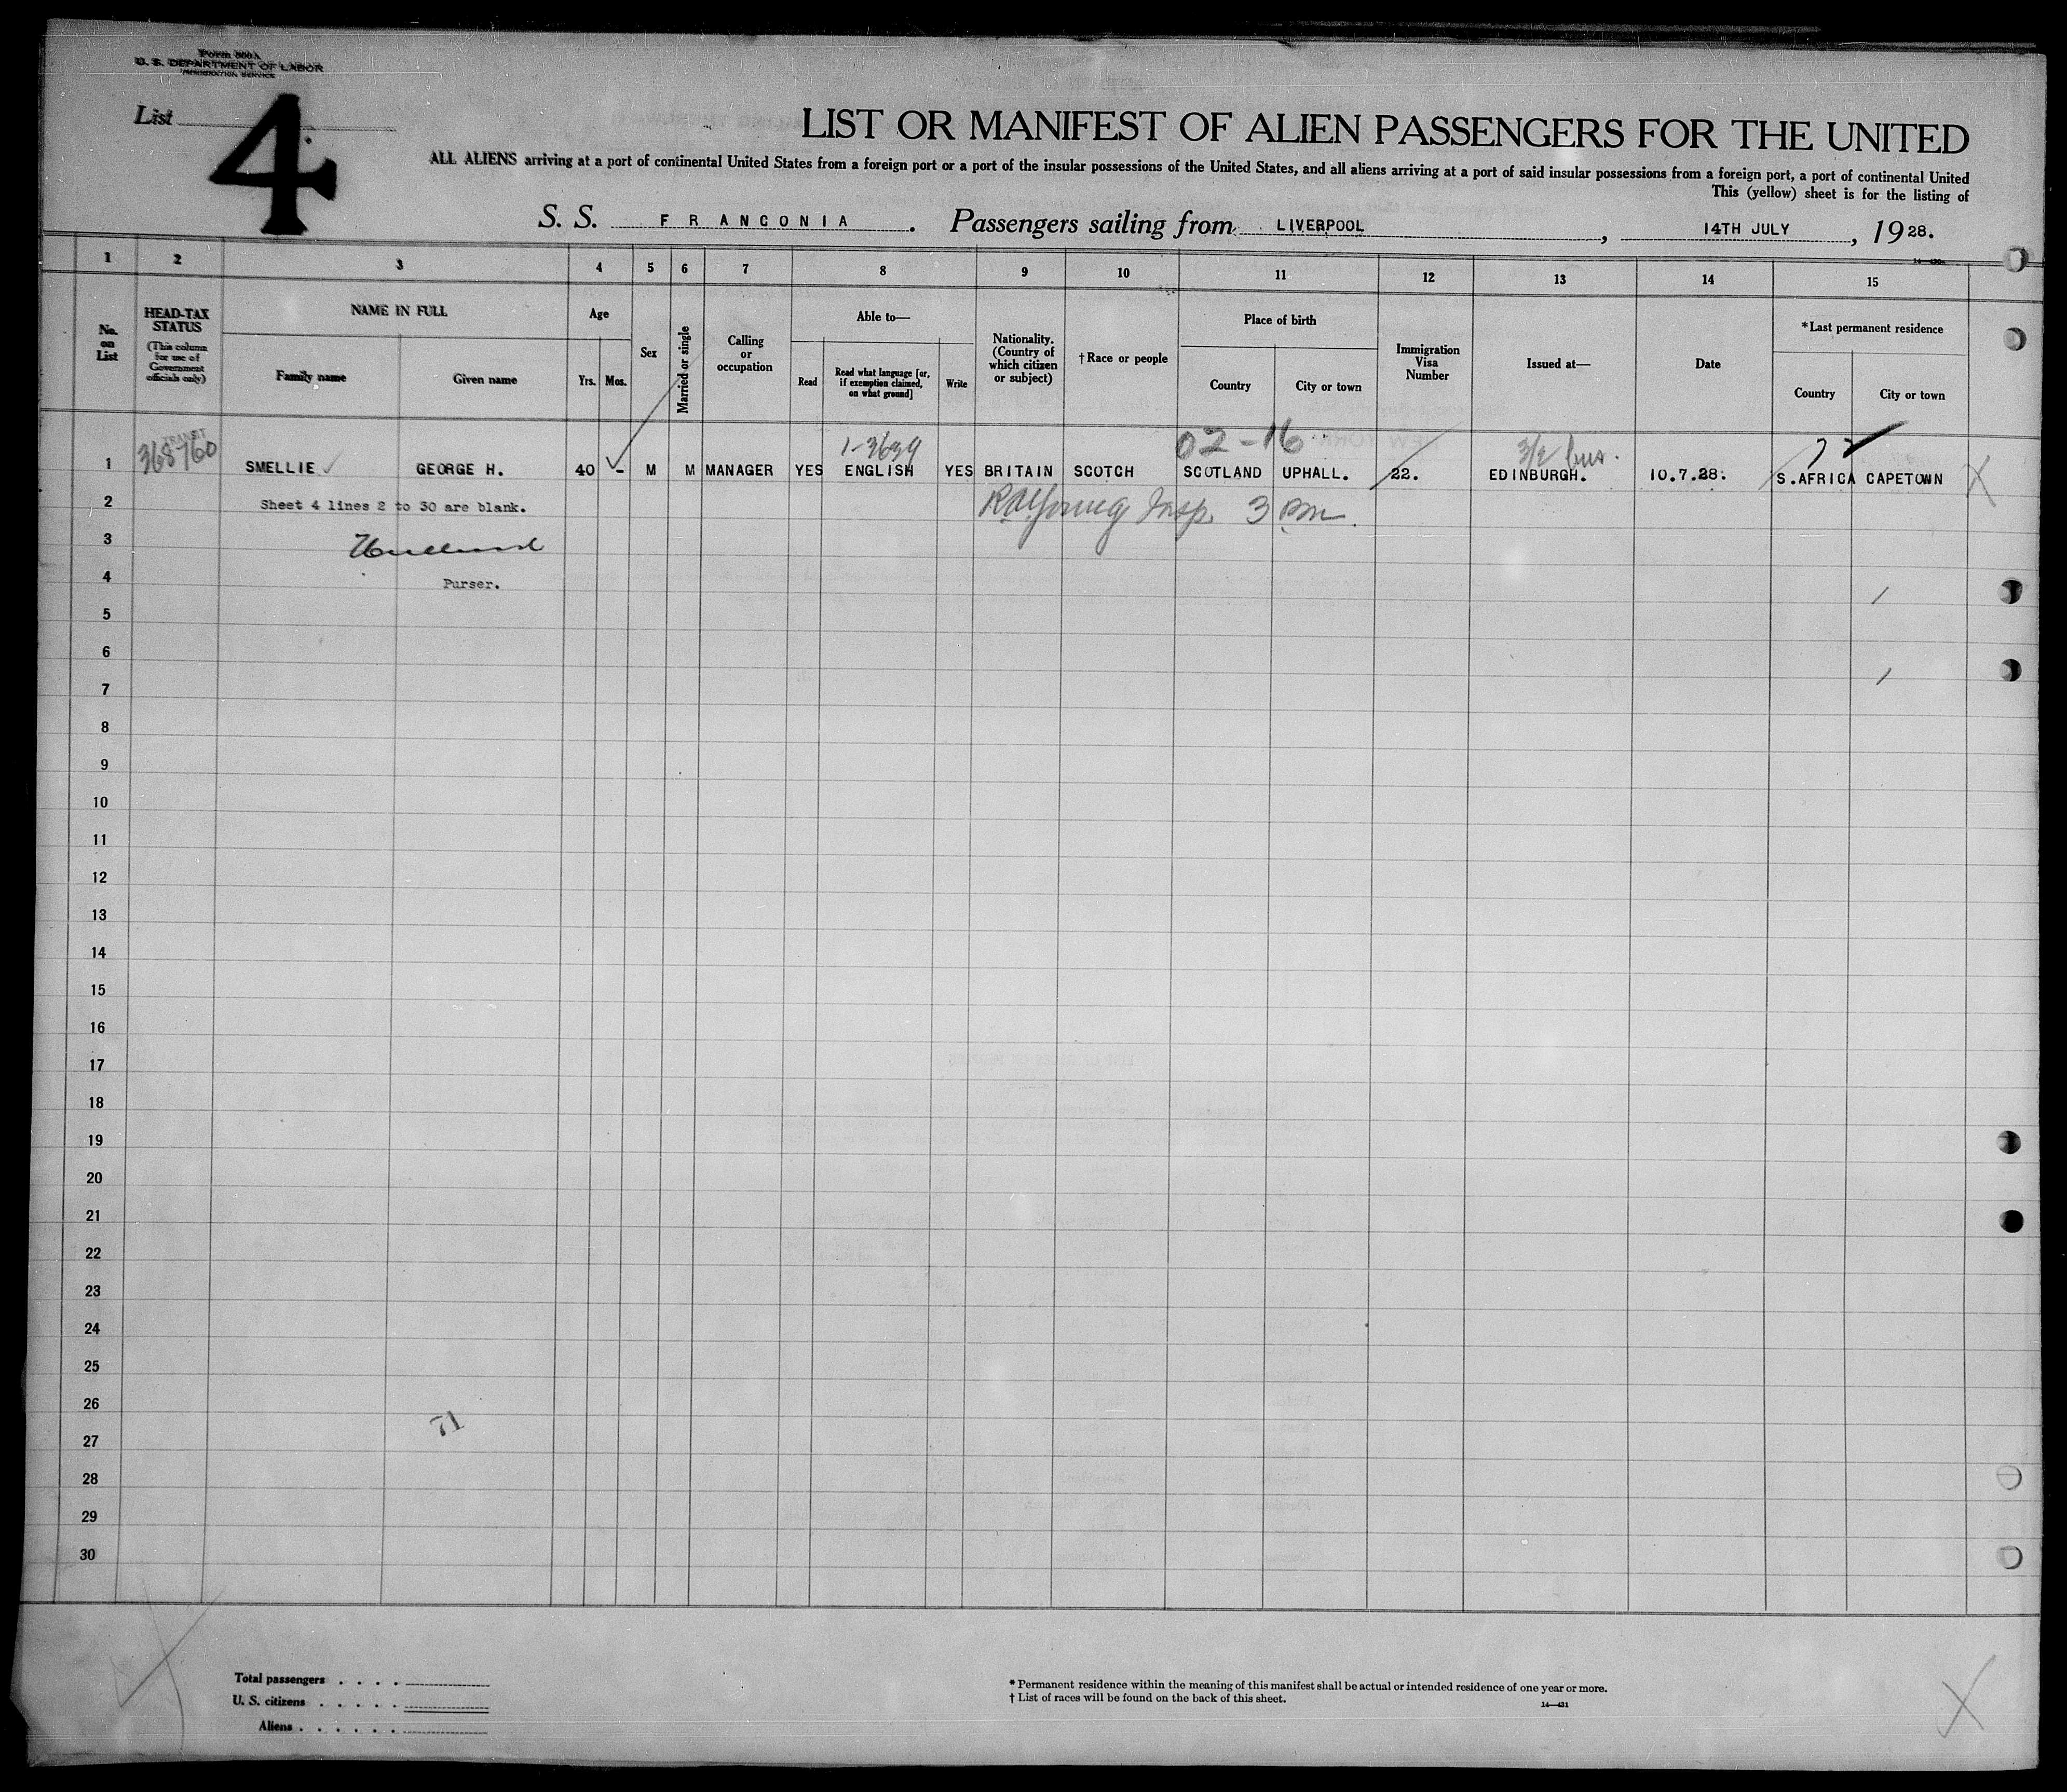 Form 500A
U. S. DEPARTMENT OF LABOR
IMMIGRATION SERVICE
List 4
LIST OR MANIFEST OF ALIEN PASSENGERS FOR THE UNITED
ALL ALIENS arriving at a port of continental United States from a foreign port or a port of the insular possessions of the United States, and all aliens arriving at a port of said insular possessions from a foreign port, a port of continental United
This (yellow) sheet is for the listing of
S. S. FRANCONIA. Passengers sailing from LIVERPOOL, 14TH JULY, 1928.
1 2 3 4 5 6 7 8 9 10 11 12 13 14 15
No. on List
HEAD-TAX STATUS
(This column for use of Government officials only)
NAME IN FULL
Family name Given name
Age
Yrs. Mos.
Sex
Married or single
Calling or occupation
Able to—
Read
Read what language [or, if exemption claimed, on what ground]
Write
Nationality. (Country of which citizen or subject)
†Race or people
Place of birth
Country City or town
Immigration Visa Number
Issued at—
Date
*Last permanent residence
Country City or town
TRANSIT
368760 1-3634 02-16
1 SMELLIE GEORGE H. 40 - M M MANAGER YES ENGLISH YES BRITAIN SCOTCH SCOTLAND UPHALL. 22. EDINBURGH. 10.7.28. S.AFRICA CAPETOWN
2 Sheet 4 lines 2 to 30 are blank. Young Insp. 3 Pm.
3
4 Purser.
5
6
7
8
9
10
11
12
13
14
15
16
17
18
19
20
21
22
23
24
25
26
71
27
28
29
30
Total passengers . . . .
U. S. citizens . . . . .
Aliens . . . . . .
* Permanent residence within the meaning of this manifest shall be actual or intended residence of one year or more.
† List of races will be found on the back of this sheet.
14—431